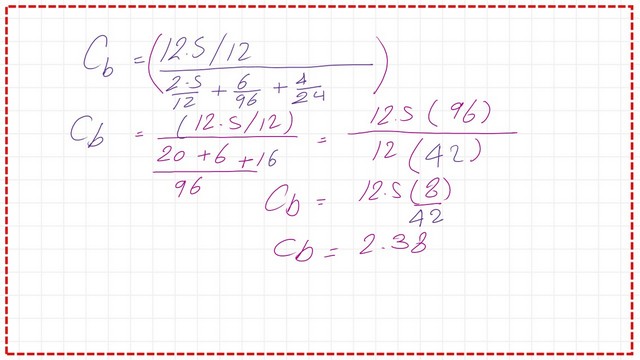 C_b = ( (12.5/12) / (2.5/12 + 6/96 + 4/24) )
C_b = (12.5/12) / ((20+6+16)/96) = 12.5(96) / 12(42)
C_b = 12.5(8) / 42
C_b = 2.38